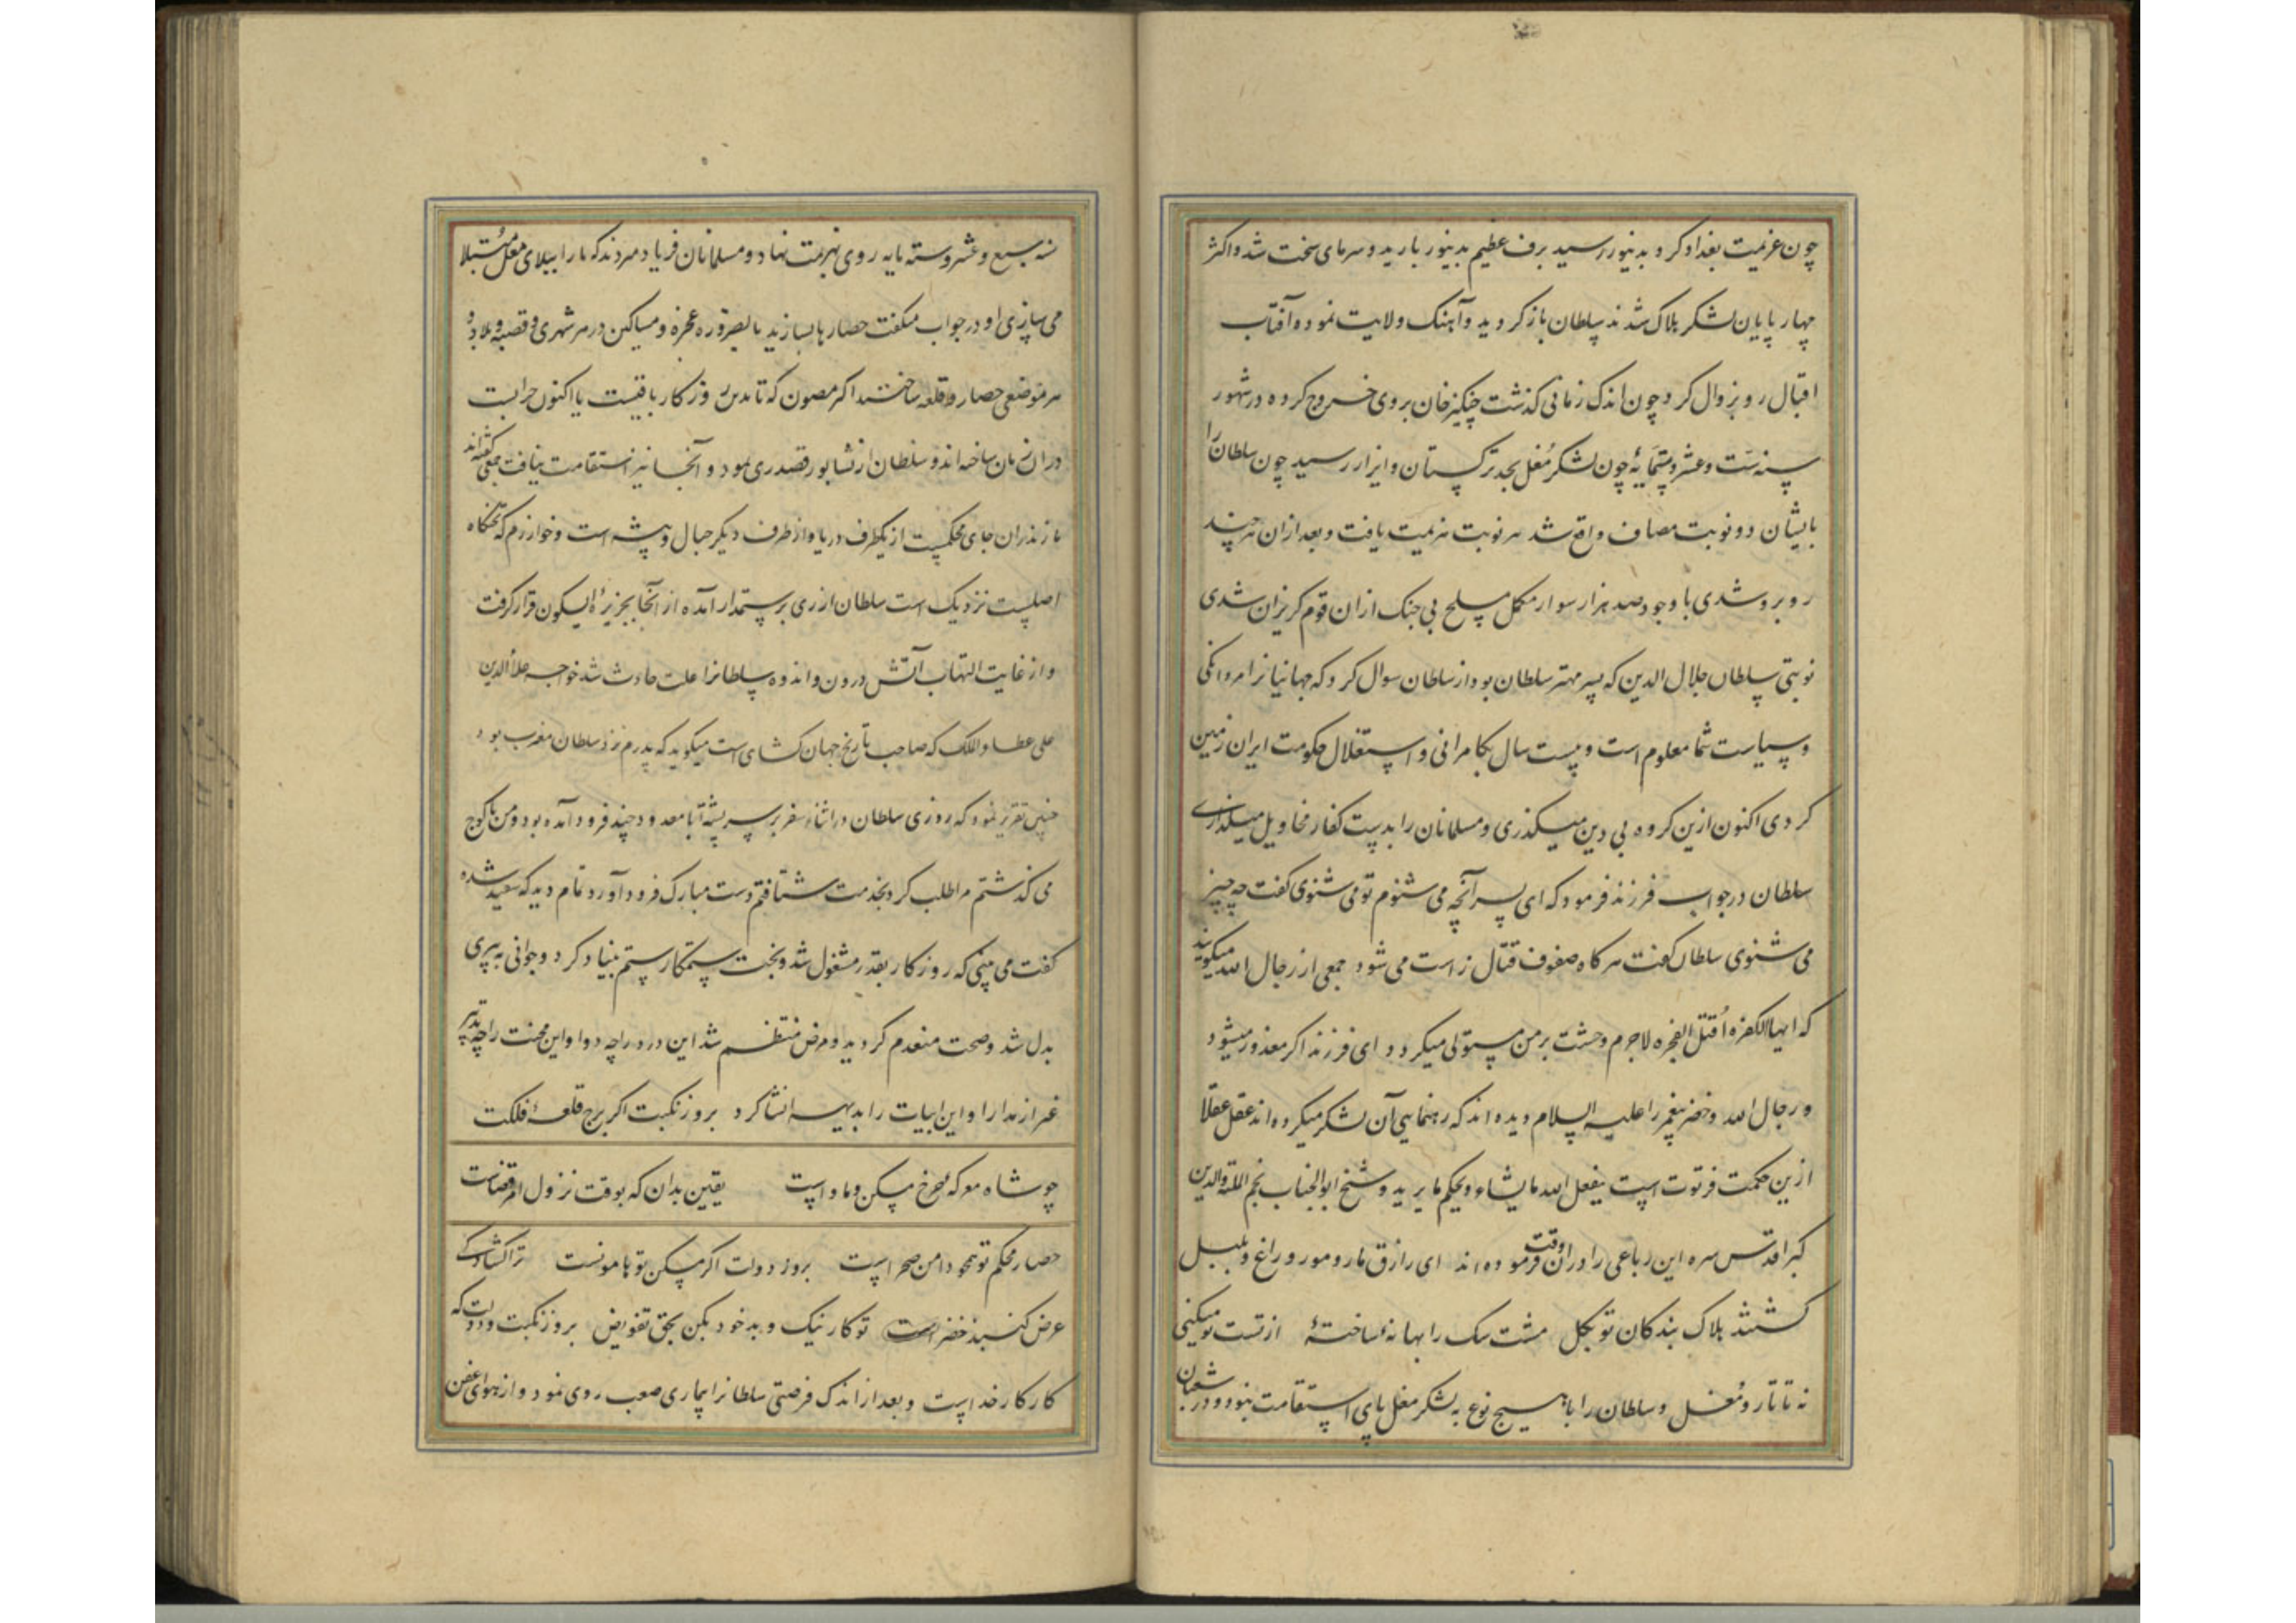 چون عزیمت بغداد کرد بدینور رسید برف عظیم بدینور بارید و سرمای سخت شد و اکثر
چهار پایان لشکر هلاک شدند سلطان باز کردید و آهنک ولایت نمود و آفتاب
اقبال رو بزوال کرد چون اندک زمانی کذشت چنکیز خان بروی خروج کرده در شهور
سنه ست و عشر و ستمایهٔ چون لشکر مُغل بحد ترکستان و اترار رسید چون سلطان را
بایشان دو نوبت مصاف واقع شد هر نوبت هزیمت یافت و بعد از ان هر چند
روبرو شدی با وجود صد هزار سوار مکمل مسلح بی جنک ازان قوم کریزان شدی
نوبتی سلطان جلال الدین که پسر مهتر سلطان بود از سلطان سوال کرد که جهانیانرا مردانکی
و سیاست شما معلوم است و بیست سال بکامرانی و استقلال حکومت ایران زمین
کردی اکنون ازین کروه بی دین میکذری و مسلمانان را بدست کفار مخاویل میکذاری
سلطان در جواب فرزند فرمود که ای پسر آنچه می شنوم تو می شنوی کفت چه چیز
می شنوی سلطان کفت هر کاه صفوف قتال راست می شود جمعی از رجال الله میکویند
که ایها الکفره اُقتل الفجره لاجرم وحشت بر من مستولی میکردد ای فرزند اکر معذور میشود
و رجال الله و خضر پیغمبر را علیه السلام دیده اند که رهنمایی آن لشکر میکرده اند عقل عقلا
ازین حکمت فرتوت است یفعل الله مایشاء و یحکم ما یرید و شیخ ابو الجناب نجم الملة والدین
کبرا قدس سره این رباعی را دران وقت فرموده اند ای رازق مار و مور و راغ و بلبل
کشتند هلاک بندکان تو بکل مشت سک را بهانهٔ ساختهٔ از تست تو میکنی
نه تاتار و مُغل و سلطان را با هیچ نوع به لشکر مغل پای استقامت نبود و در شعبان
سنه سبع و عشر و ستمایه روی بهزیمت نهاد و مسلمانان فریاد مردند که ما را ببلای مغل مبتلا
می سازی او در جواب میکفت حصارها بسازید بالضروره عجزه و مساکین در هر شهری و قصبه و بلاد و
هر موضعی حصار و قلعه ساختند اکر مصون که تا بدین روزکار باقیست یا اکنون خرابست
دران زمان ساخته اند و سلطان از نشابور قصد ری نمود و آنجا نیز استقامت نیافت جمعی کفته اند
مازندران جای محکمیست از یکطرف دریا و از طرف دیکر جبال و بیشه است و خوارزم که تختکاه
اصلیست نزدیک است سلطان از ری برستمدار آمده از آنجا بجزیرهٔ ابسکون قرار کرفت
و از غایت التهاب آتش درون و اندوه سلطانرا علت حادث شد خواجه علاءالدین
علی عطاء الملک که صاحب تاریخ جهان کشای است میکوید که پدرم نزد سلطان مقرب بود
چنین تقریر نمود که روزی سلطان در اثناء سفر بر سر پشتهٔ با معدودی چند فرود آمده بود و من با کوچ
می کذشتم مرا طلب کرد بخدمت شتافتم دست مبارک فرود آورد تمام دید که سفید شده
کفت می بینی که روزکار بغدر مشغول شد و بخت ستمکار ستم بنیاد کرد و جوانی به پیری
بدل شد و صحت منعدم کردید و مرض منتظم شد این درد را چه دوا و این محنت را چه تدبیر
غیر از مدارا و این ابیات را بدیهه انشا کرد بروز نکبت اکر برج قلعهٔ فلکت
چو شاه معرکه چرخ مسکن و ماواست یقین بدان که بوقت نزول امر قضات
حصار محکم تو همچو دامن صحراست بروز دولت اکر مسکن تو هامونست ترا کشادکی
عرض کنبد خضراست تو کار نیک و بد خود بکن بحق تفویض بروز نکبت و دولت که
کار کار خداست و بعد از اندک فرصتی سلطانرا بیماری صعب روی نمود و از هوای عفن